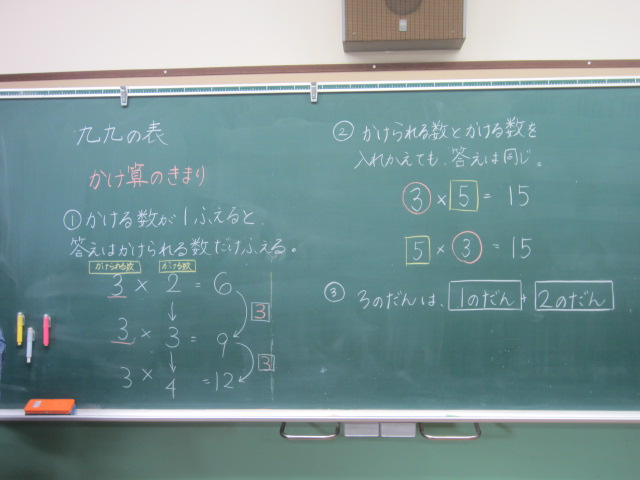 九九の表
かけ算のきまり
①かける数が1ふえると、
答えはかけられる数だけふえる。
かけられる数 かける数
3 × 2 = 6
3
3 × 3 = 9
3
3 × 4 = 12
② かけられる数とかける数を
入れかえても、答えは同じ。
3 × 5 = 15
5 × 3 = 15
③ 3のだんは、1のだん+2のだん